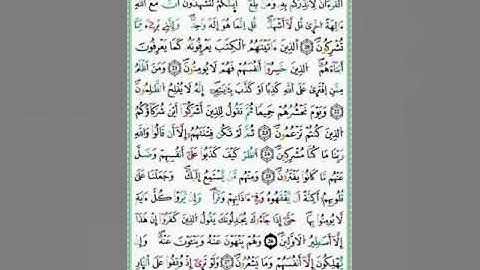 الْقُرْءَانُ لِأُنذِرَكُم بِهِ وَمَنۢ بَلَغَ أَئِنَّكُمْ لَتَشْهَدُونَ أَنَّ مَعَ اَللَّهِ
ءَالِهَةً اخْرَىٰ قُل لَّا أَشْهَدُ قُلِ اِنَّمَا هُوَ إِلَٰهٌ وَاحِدٌ وَإِنَّنِي بَرِيءٌ مِّمَّا
تُشْرِكُونَ الذِينَ ءَاتَيْنَٰهُمُ الْكِتَٰبَ يَعْرِفُونَهُ كَمَا يَعْرِفُونَ
أَبْنَاءَهُمُ الذِينَ خَسِرُوا أَنفُسَهُمْ فَهُمْ لَا يُومِنُونَ وَمَنَ اَظْلَمُ
مِمَّنِ اِفْتَرَىٰ عَلَى اَللَّهِ كَذِبًا اَوْ كَذَّبَ بِـَٔايَٰتِهِ إِنَّهُ لَا يُفْلِحُ الظَّٰلِمُونَ
وَيَوْمَ نَحْشُرُهُمْ جَمِيعًا ثُمَّ نَقُولُ لِلذِينَ أَشْرَكُوا أَيْنَ شُرَكَاؤُكُمُ
الذِينَ كُنتُمْ تَزْعُمُونَ ثُمَّ لَمْ تَكُن فِتْنَتَهُمْ إِلَّا أَن قَالُوا وَاللَّهِ
رَبِّنَا مَا كُنَّا مُشْرِكِينَ اَنظُرْ كَيْفَ كَذَبُوا عَلَىٰ أَنفُسِهِمْ وَضَلَّ
عَنْهُم مَّا كَانُوا يَفْتَرُونَ وَمِنْهُم مَّن يَسْتَمِعُ إِلَيْكَ وَجَعَلْنَا عَلَىٰ
قُلُوبِهِمُ أَكِنَّةً اَن يَفْقَهُوهُ وَفِي ءَاذَانِهِمْ وَقْرًا وَإِن يَرَوْا كُلَّ ءَايَةٍ
لَّا يُومِنُوا بِهَا حَتَّىٰ إِذَا جَاءُوكَ يُجَٰدِلُونَكَ يَقُولُ الذِينَ كَفَرُوا إِنْ هَٰذَا
إِلَّا أَسَٰطِيرُ الَاوَّلِينَ وَهُمْ يَنْهَوْنَ عَنْهُ وَيَنْـَٔوْنَ عَنْهُ وَإِن
يُهْلِكُونَ إِلَّا أَنفُسَهُمْ وَمَا يَشْعُرُونَ وَلَوْ تَرَىٰ إِذْ وُقِفُوا عَلَى اَلنَّارِ